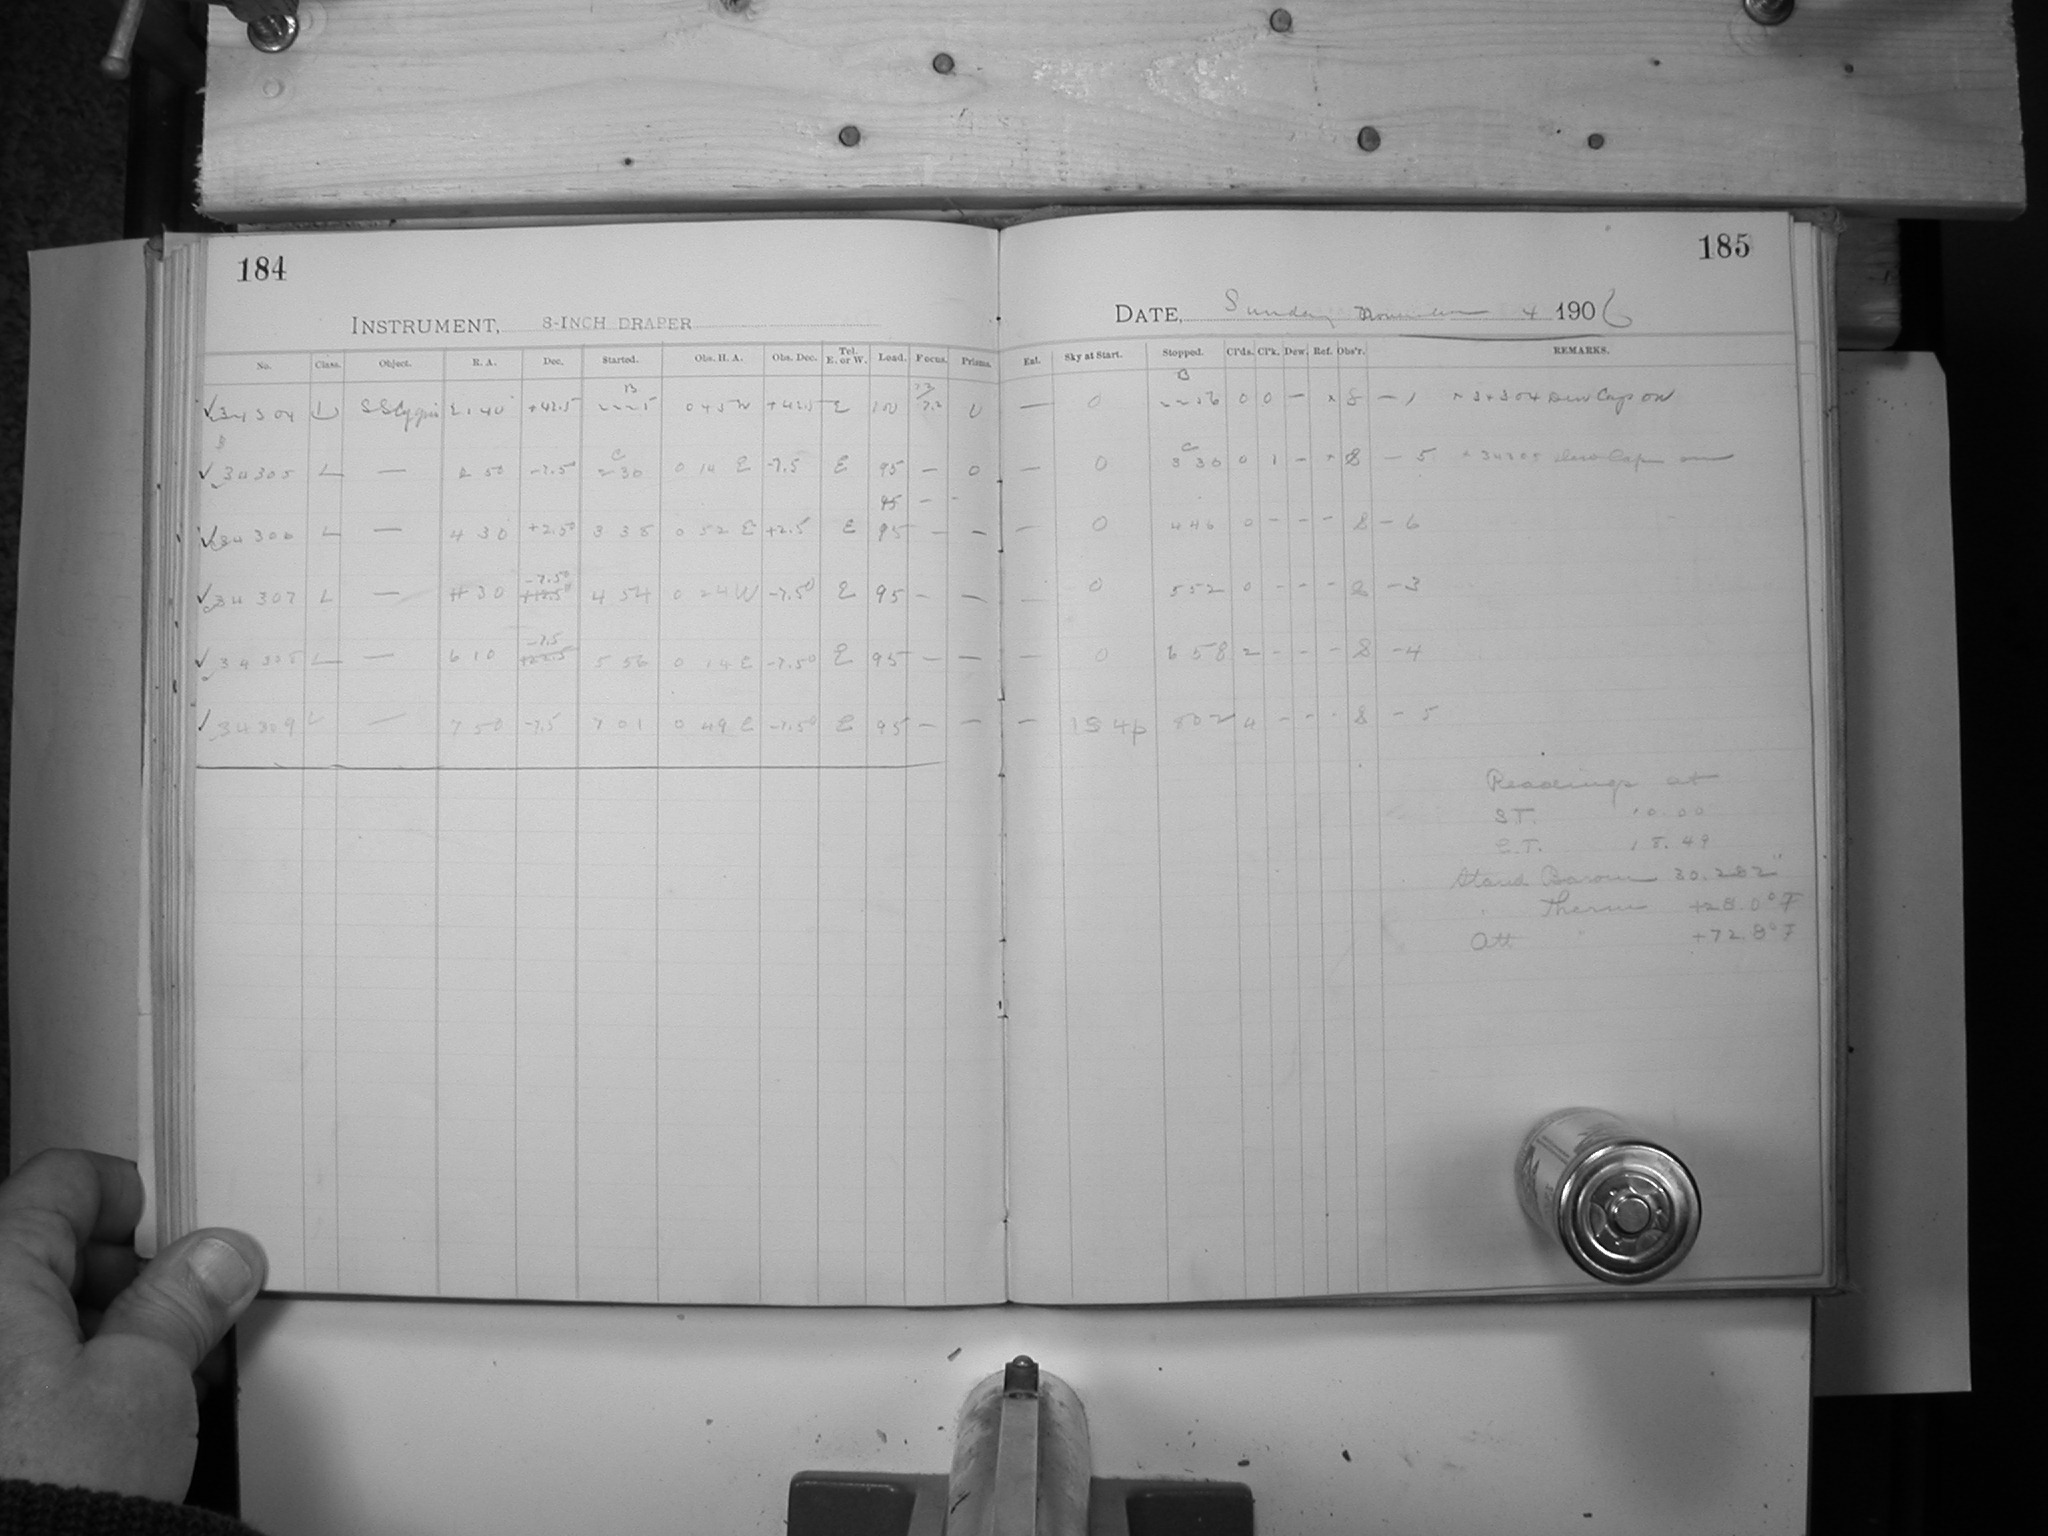 184
INSTRUMENT, 8-INCH DRAPER
No. Class. Object. R. A. Dec. Started. Obs. H. A. Obs. Dec. Tel. E. or W. Lead. Focus. Prisms.
34304 L SS Cygni 21 40 +42.5 B 22 25 0 45 W +42.5 E 100 7.3 7.2 0
34305 L — 2 50 -7.5° C 2 30 0 14 E -7.5 E 95 — 0
95 — -
34306 L — 4 30 +2.5° 3 38 0 52 E +2.5 E 95 — —
34307 L — 4 30 -7.5° 4 54 0 24 W -7.5° E 95 — —
34308 L — 6 10 -7.5 +22.5 5 56 0 14 E -7.5° E 95 — —
34309 L — 7 50 -7.5 7 01 0 49 E -7.5° E 95 — —
185
DATE, Sunday November 4 1906
Ext. Sky at Start. Stopped. Cl'ds. Cl'k. Dew. Ref. Obs'r. REMARKS.
— 0 B 22 36 0 0 — × 8 — 1 × 34304 Dew Cap on
— 0 C 3 30 0 1 - × 8 — 5 × 34305 Dew Cap on
— 0 4 46 0 - - - 8 — 6
— 0 5 52 0 - - - 8 — 3
— 0 6 58 2 - - - 8 — 4
— 1S 4p 8 02 4 - - - 8 — 5
Readings at
S.T. 10.00
E.T. 18.49
Stand Barom 30.282"
" Therm +28.0° F
Att " +72.8° F